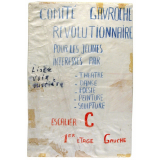 COMITÉ GAVROCHE
RÉVOLUTIONNAIRE
POUR LES JEUNES
INTÉRESSÉS PAR
- THÉÂTRE
- DANSE
- POÉSIE
- PEINTURE
- SCULPTURE
Liste
Voir
ESCALIER C
1ER ETAGE GAUCHE